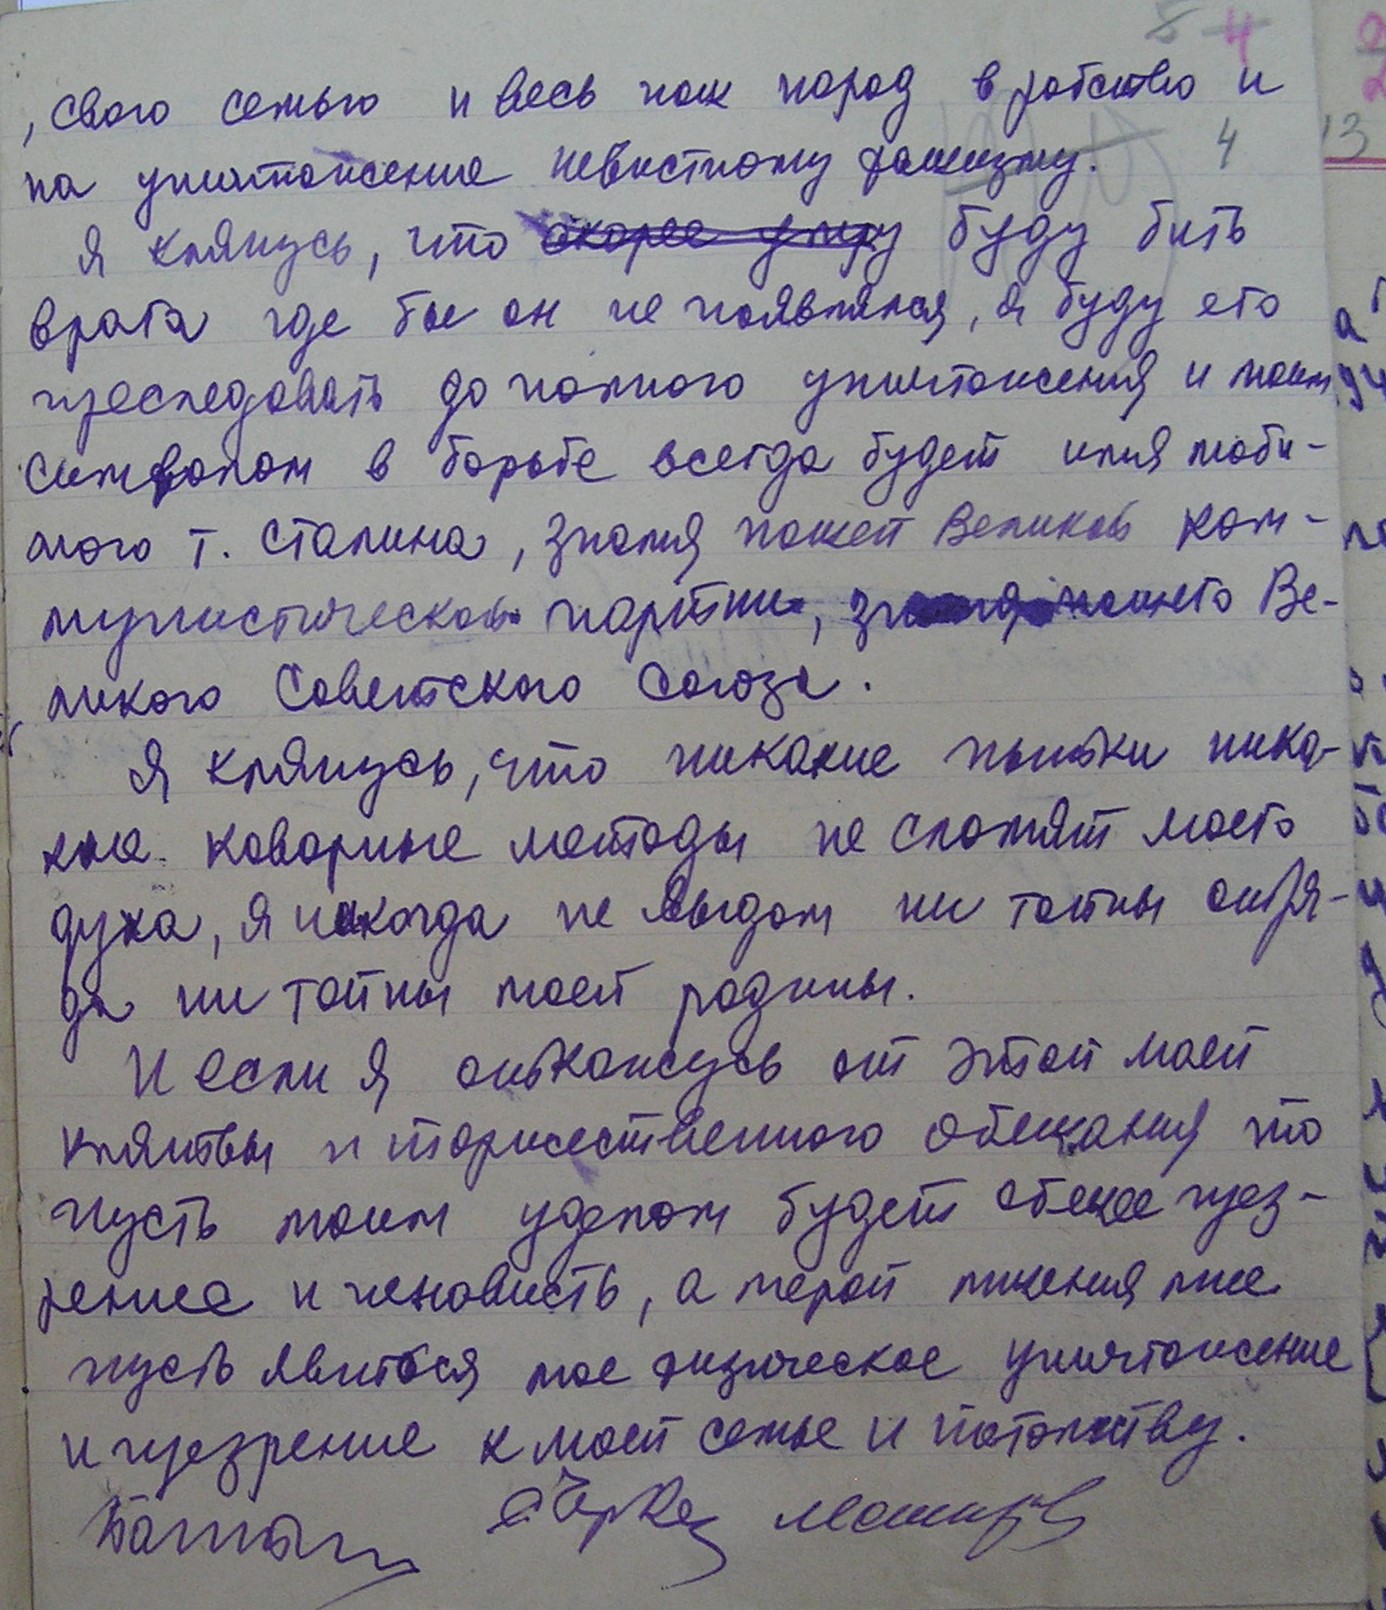 5 4
, свою семью и весь наш народ в рабство и
на уничтожение невистному фашизму. 4
Я клянусь, что скорее умру буду бить
врага где бы он не появлялся, я буду его
преследовать до полного уничтожения и моим
символом в борьбе всегда будет имя люби-
мого т. Сталина, знамя нашей Великой ком-
мунистической партии, знамя нашего Ве-
ликого Советского Союза.
Я клянусь, что никакие пытки ника-
кие коварные методы не сломят моего
духа, я никогда не выдам ни тайны отря-
да ни тайны моей родины.
И если я откажусь от этой моей
клятвы и торжественного обещания то
пусть моим уделом будет общее през-
рение и ненависть, а мерой мщения мне
пусть явиться мое физическое уничтожение
и презрение к моей семье и потомству.
13